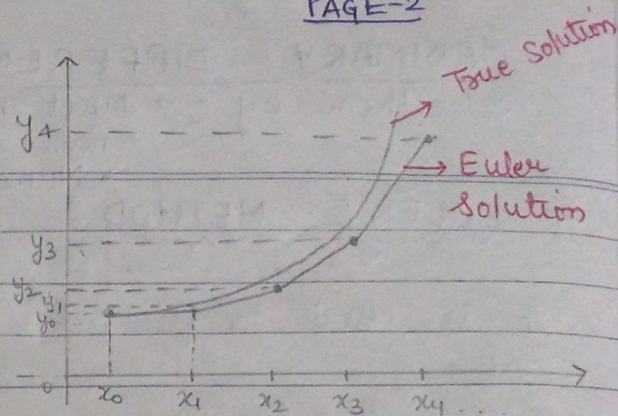 PAGE-2
True Solution
y4
Euler
Solution
y3
y2
y1
y0
0
x0 x1 x2 x3 x4 ...